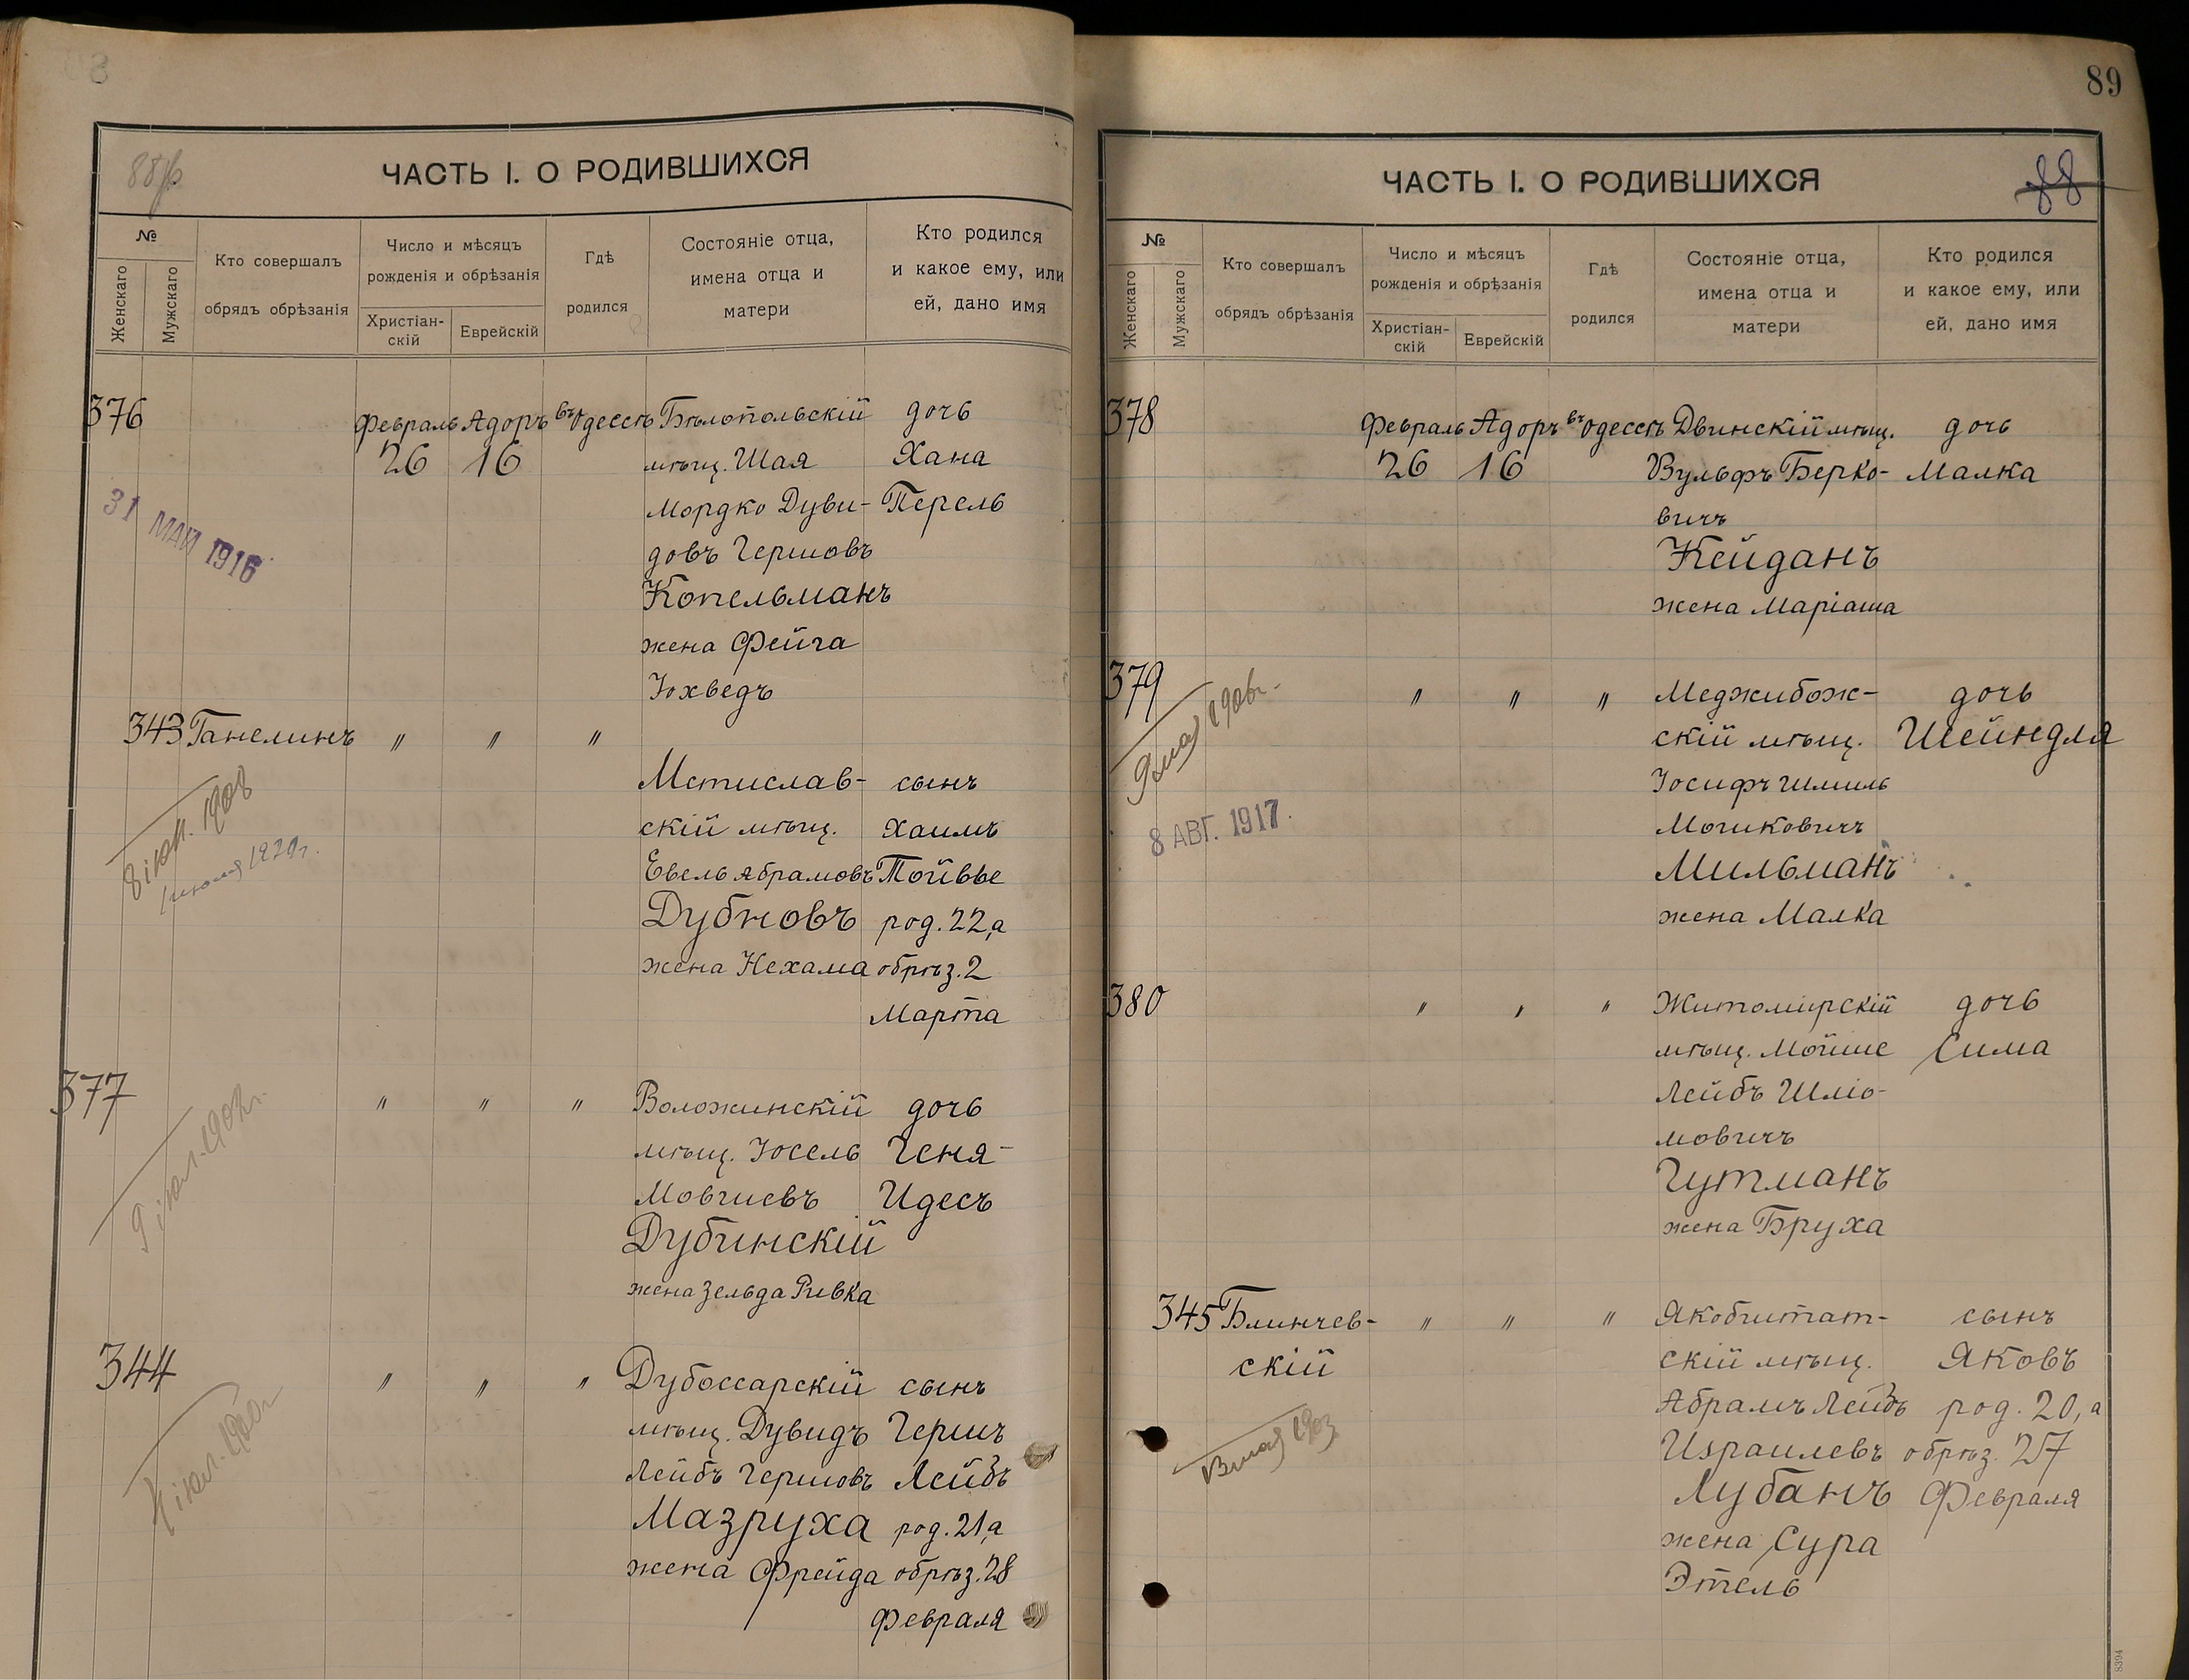 88об
ЧАСТЬ I. О РОДИВШИХСЯ
№
Женскаго
Мужскаго
Кто совершалъ
обрядъ обрѣзанія
Число и мѣсяцъ
рожденія и обрѣзанія
Христіан-
скій
Еврейскій
Гдѣ
родился
Состояніе отца,
имена отца и
матери
Кто родился
и какое ему, или
ей, дано имя
376 Февраль Адоръ въ Одессѣ Бѣлопольскій дочь
26 16 мѣщ. Шая Хана
31 МАЙ 1916
Мордко Дуви- Перель
довъ Гершовъ
Копельманъ
жена Фейга
Іохведъ
343 Ганелинъ " " "
Мстислав- сынъ
скій мѣщ. Хаимъ
8 іюл. 1908
1 іюля 1920г.
Евель Абрамовъ Тойвье
Дубновъ род. 22, а
жена Нехама обрѣз. 2
Марта
377 " " " Воложинскій дочь
9 іюл. 1907г.
мѣщ. Іосель Геня-
Мовшевъ Идесъ
Дубинскій
жена Зельда Ривка
344 " " " Дубоссарскій сынъ
мѣщ. Дувидъ Гершъ
Лейбъ Гершовъ Лейбъ
Мазруха род. 21, а
жена Фрейда обрѣз. 28
Февраля
89
ЧАСТЬ I. О РОДИВШИХСЯ
88
№
Женскаго
Мужскаго
Кто совершалъ
обрядъ обрѣзанія
Число и мѣсяцъ
рожденія и обрѣзанія
Христіан-
скій
Еврейскій
Гдѣ
родился
Состояніе отца,
имена отца и
матери
Кто родился
и какое ему, или
ей, дано имя
378 Февраль Адоръ въ Одессѣ Двинскій мѣщ. дочь
26 16 Вульфъ Берко- Малка
вичъ
Кейданъ
жена Маріаша
379 " " " Меджибож- дочь
9 мая 1906г.
скій мѣщ. Шейндля
Іосифъ Шмиль
8 АВГ. 1917.
Мошковичъ
Мильманъ
жена Малка
380 " " " Житомірскій дочь
мѣщ. Мойше Сима
Лейбъ Шліо-
мовичъ
Гутманъ
жена Бруха
345 Блинчев- " " " Якобштат- сынъ
скій скій мѣщ. Яковъ
Абрамъ Лейбъ род. 20, а
мая 1903
Израилевъ обрѣз. 27
Лубанъ Февраля
жена Сура
Этель
8394